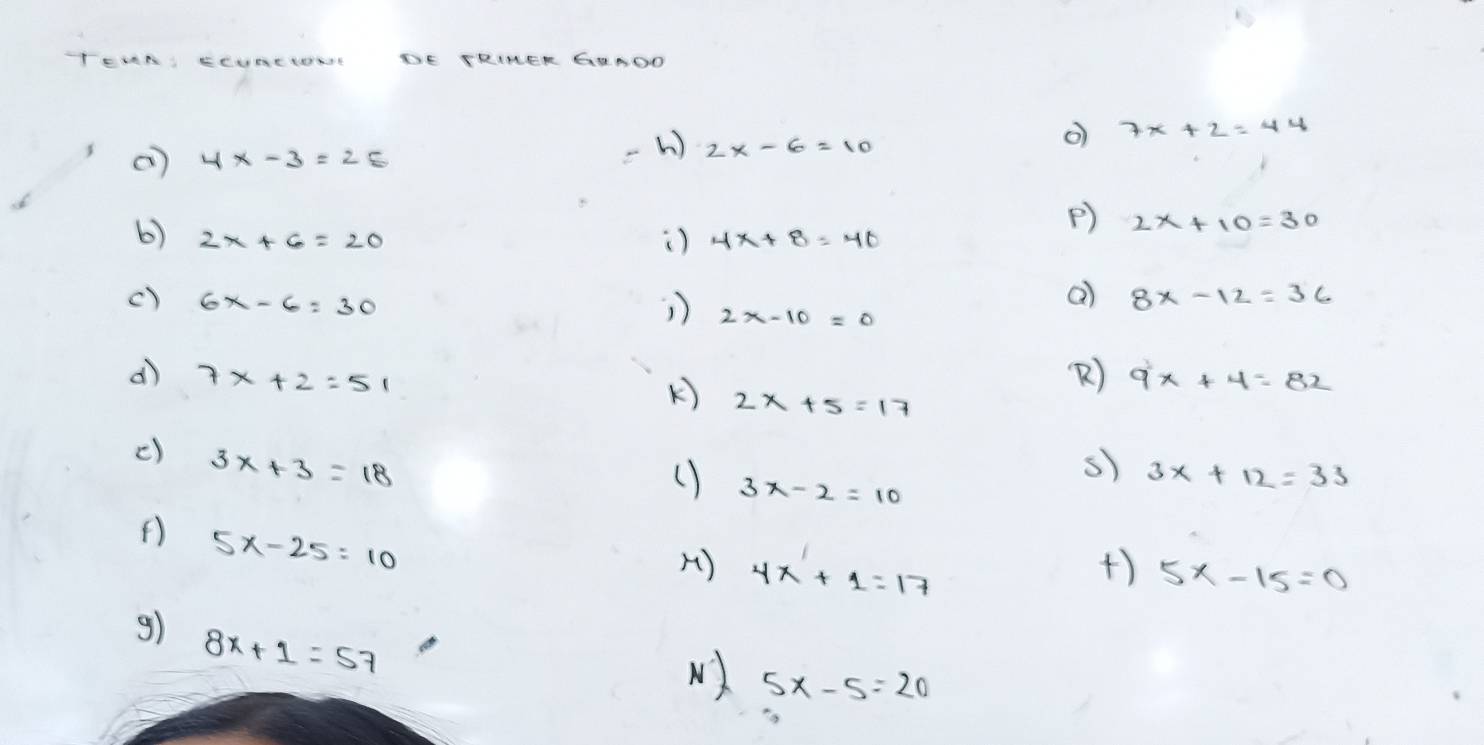 TEMA: ECUACIONE DE PRIMER GRADO
a) 4x - 3 = 25
b) 2x + 6 = 20
c) 6x - 6 = 30
d) 7x + 2 = 51
e) 3x + 3 = 18
f) 5x - 25 = 10
g) 8x + 1 = 57
h) 2x - 6 = 10
i) 4x + 8 = 40
j) 2x - 10 = 0
K) 2x + 5 = 17
l) 3x - 2 = 10
M) 4x + 1 = 17
N) 5x - 5 = 20
o) 7x + 2 = 44
P) 2x + 10 = 30
Q) 8x - 12 = 36
R) 9x + 4 = 82
S) 3x + 12 = 33
t) 5x - 15 = 0